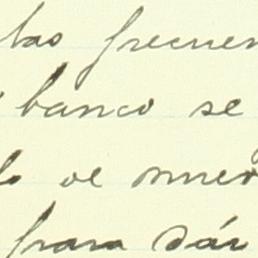 las frecuen
banco se
lo de nuev
para dár